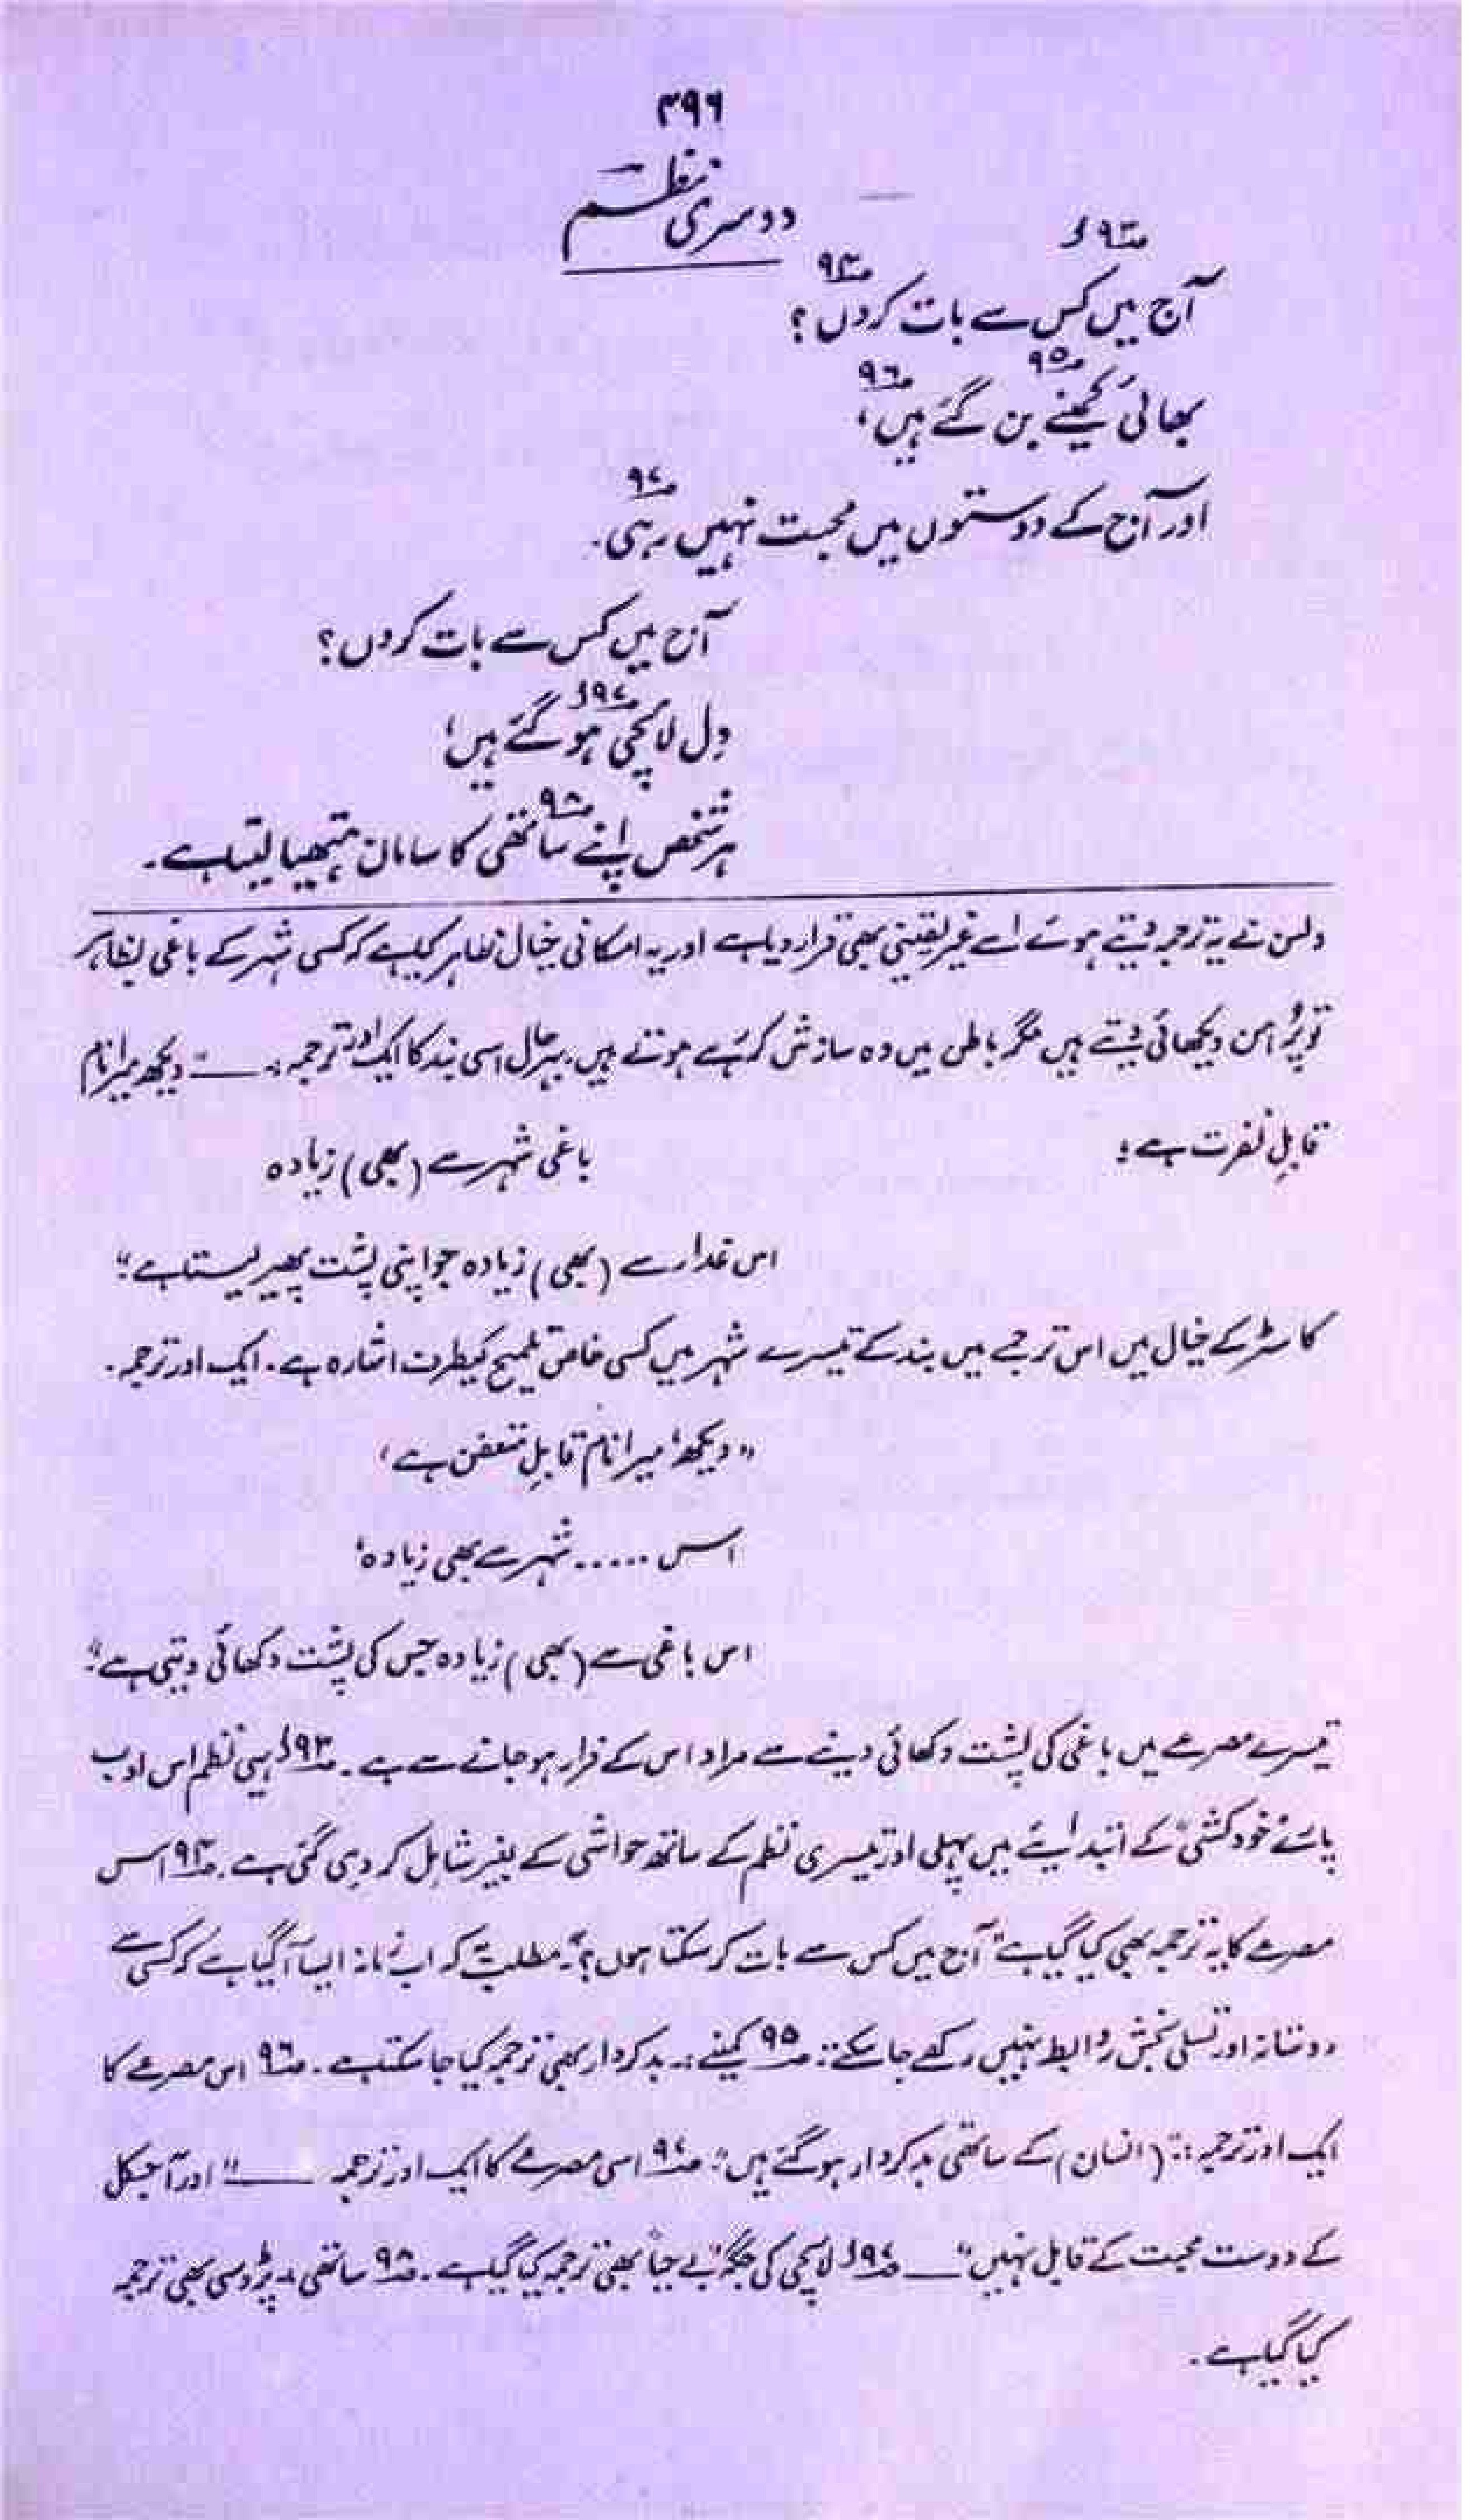 ۳۹۶
دوسری نظم
۹۳ؔ ا
آج میں کس سے بات کروں؟ ۹۴ؔ
بھائی کمینے ۹۵ؔ بن گئے ہیں، ۹۶ؔ
اور آج کے دوستوں میں محبت نہیں رہی۔ ۹۷ؔ
آج میں کس سے بات کروں؟
دل لالچی ۹۷ؔ ا ہو گئے ہیں،
ہر شخص اپنے ساتھی ۹۸ؔ کا سامان ہتھیا لیتا ہے۔
ولسن نے یہ ترجمہ دیتے ہوئے اسے غیر یقینی بھی قرار دیا ہے اور یہ امکانی خیال ظاہر کیا ہے کہ کسی شہر کے باغی بظاہر
تو پُر امن دیکھائی دیتے ہیں مگر باطن میں وہ سازش کر رہے ہوتے ہیں۔ بہرحال اسی بند کا ایک اور ترجمہ:۔ ــــ "دیکھ میرا نام
قابلِ نفرت ہے؛
باغی شہر سے (بھی) زیادہ
اس غدار سے (بھی) زیادہ جو اپنی پشت پھیر لیتا ہے"؛
کاسٹر کے خیال میں اس ترجمے میں بند کے تیسرے شہر میں کسی خاص تلمیح کیطرف اشارہ ہے۔ ایک اور ترجمہ۔
"دیکھ، میرا نام قابلِ تعفن ہے،
اس ..... شہر سے بھی زیادہ،
اس باغی سے (بھی) زیادہ جس کی پشت دکھائی دیتی ہے"؛
تیسرے مصرعے میں باغی کی پشت دکھائی دینے سے مراد اس کے فرار ہو جانے سے ہے۔ ۹۳ؔ ا یہی نظم اس ادب
پائے خودکشی" کے ابتدائیے میں پہلی اور تیسری نظم کے ساتھ حواشی کے بغیر شامل کر دی گئی ہے۔ ۹۴ؔ اس
مصرعے کا یہ ترجمہ بھی کیا گیا ہے "آج میں کس سے بات کر سکتا ہوں؟" مطلب یہ کہ اب زمانہ ایسا آ گیا ہے کہ کسی سے
دوستانہ اور تسلی بخش روابط نہیں رکھے جا سکتے۔ ۹۵ؔ کمینے:۔ بدکردار بھی ترجمہ کیا جا سکتا ہے۔ ۹۶ؔ اس مصرعے کا
ایک اور ترجمہ:۔ "(انسان) کے ساتھی بدکردار ہو گئے ہیں"؛ ۹۷ؔ اسی مصرعے کا ایک اور ترجمہ ــــ "اور آجکل
کے دوست محبت کے قابل نہیں" ــــ ۹۷ؔ ا لالچی کی جگہ "بے حیا" بھی ترجمہ کیا گیا ہے۔ ۹۸ؔ ساتھی۔ پڑوسی بھی ترجمہ
کیا گیا ہے۔